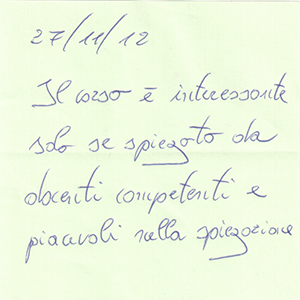 27/11/12
Il corso è interessante
solo se spiegato da
docenti competenti e
piacevoli nella spiegazione